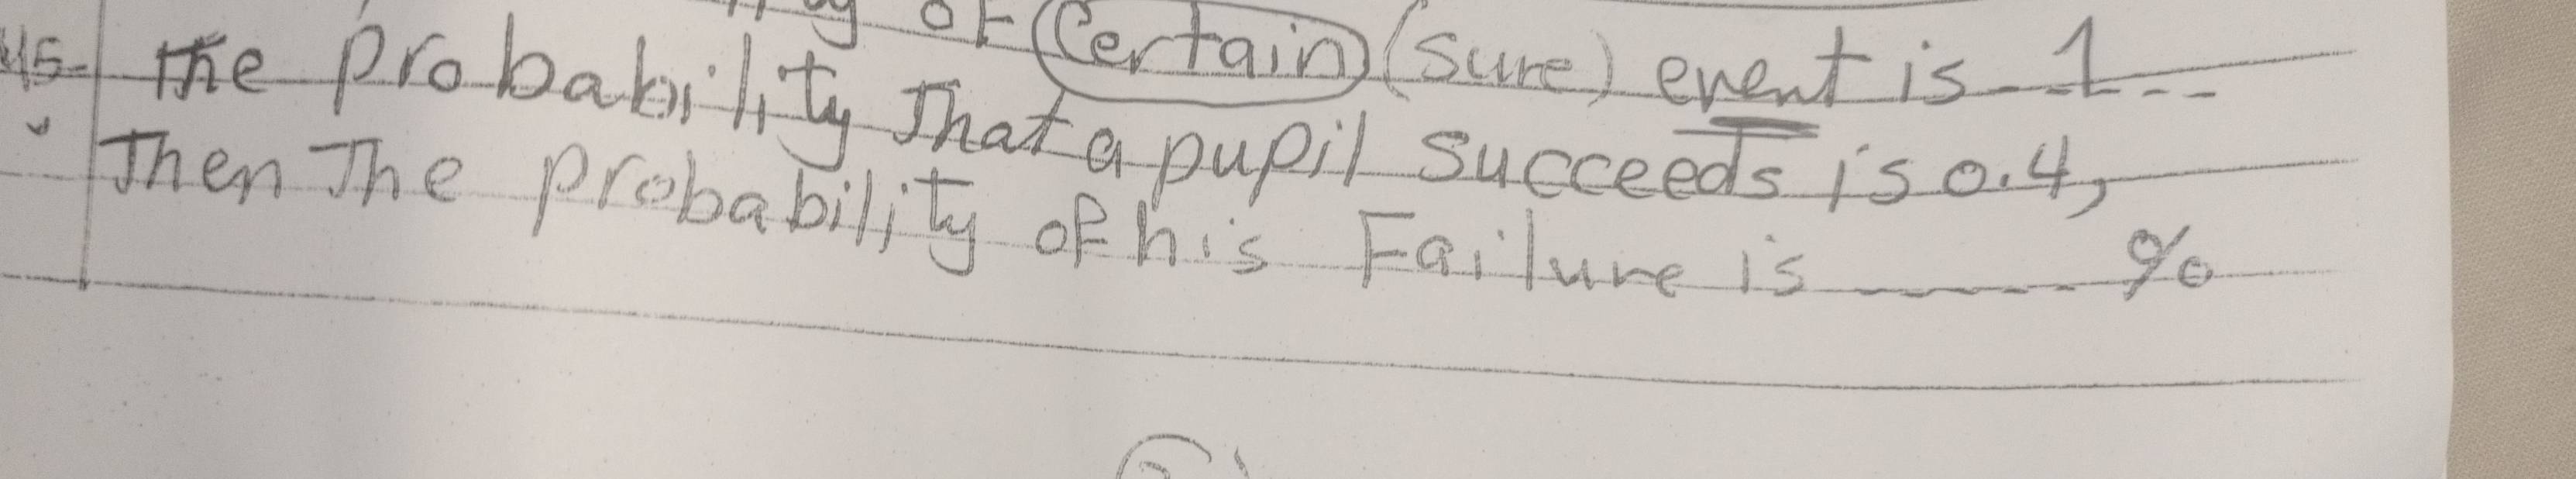 of Certain (sure) event is 1
45- the probability that a pupil succeeds is 0.4,
Then The probability of his Failure is ------ %